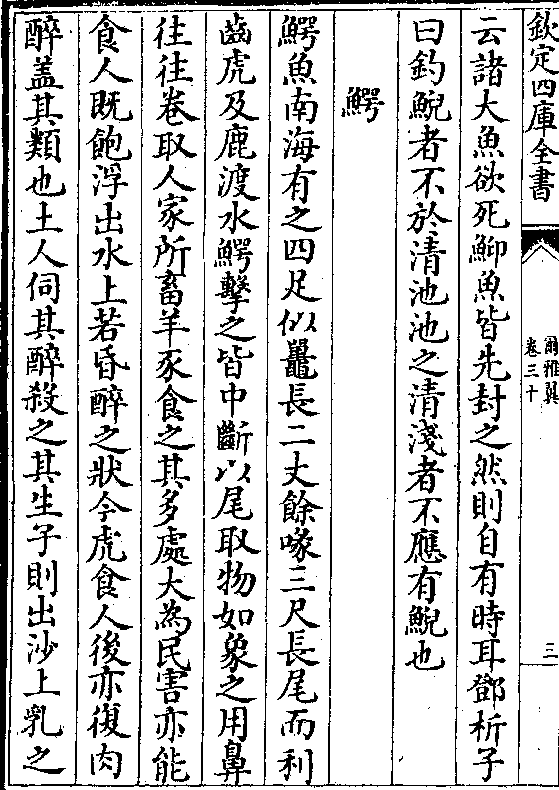 欽定四庫全書
爾雅翼
卷三十
三
云諸大魚欲死鯽魚皆先封之然則自有時耳鄧析子
曰釣鯢者不於清池池之清淺者不應有鯢也
鰐
鰐魚南海有之四足似鼉長二丈餘喙三尺長尾而利
齒虎及鹿渡水鰐擊之皆中斷以尾取物如象之用鼻
往往卷取人家所畜羊豕食之其多處大為民害亦能
食人既飽浮出水上若昏醉之狀今虎食人後亦復肉
醉盖其類也土人伺其醉殺之其生子則出沙上乳之